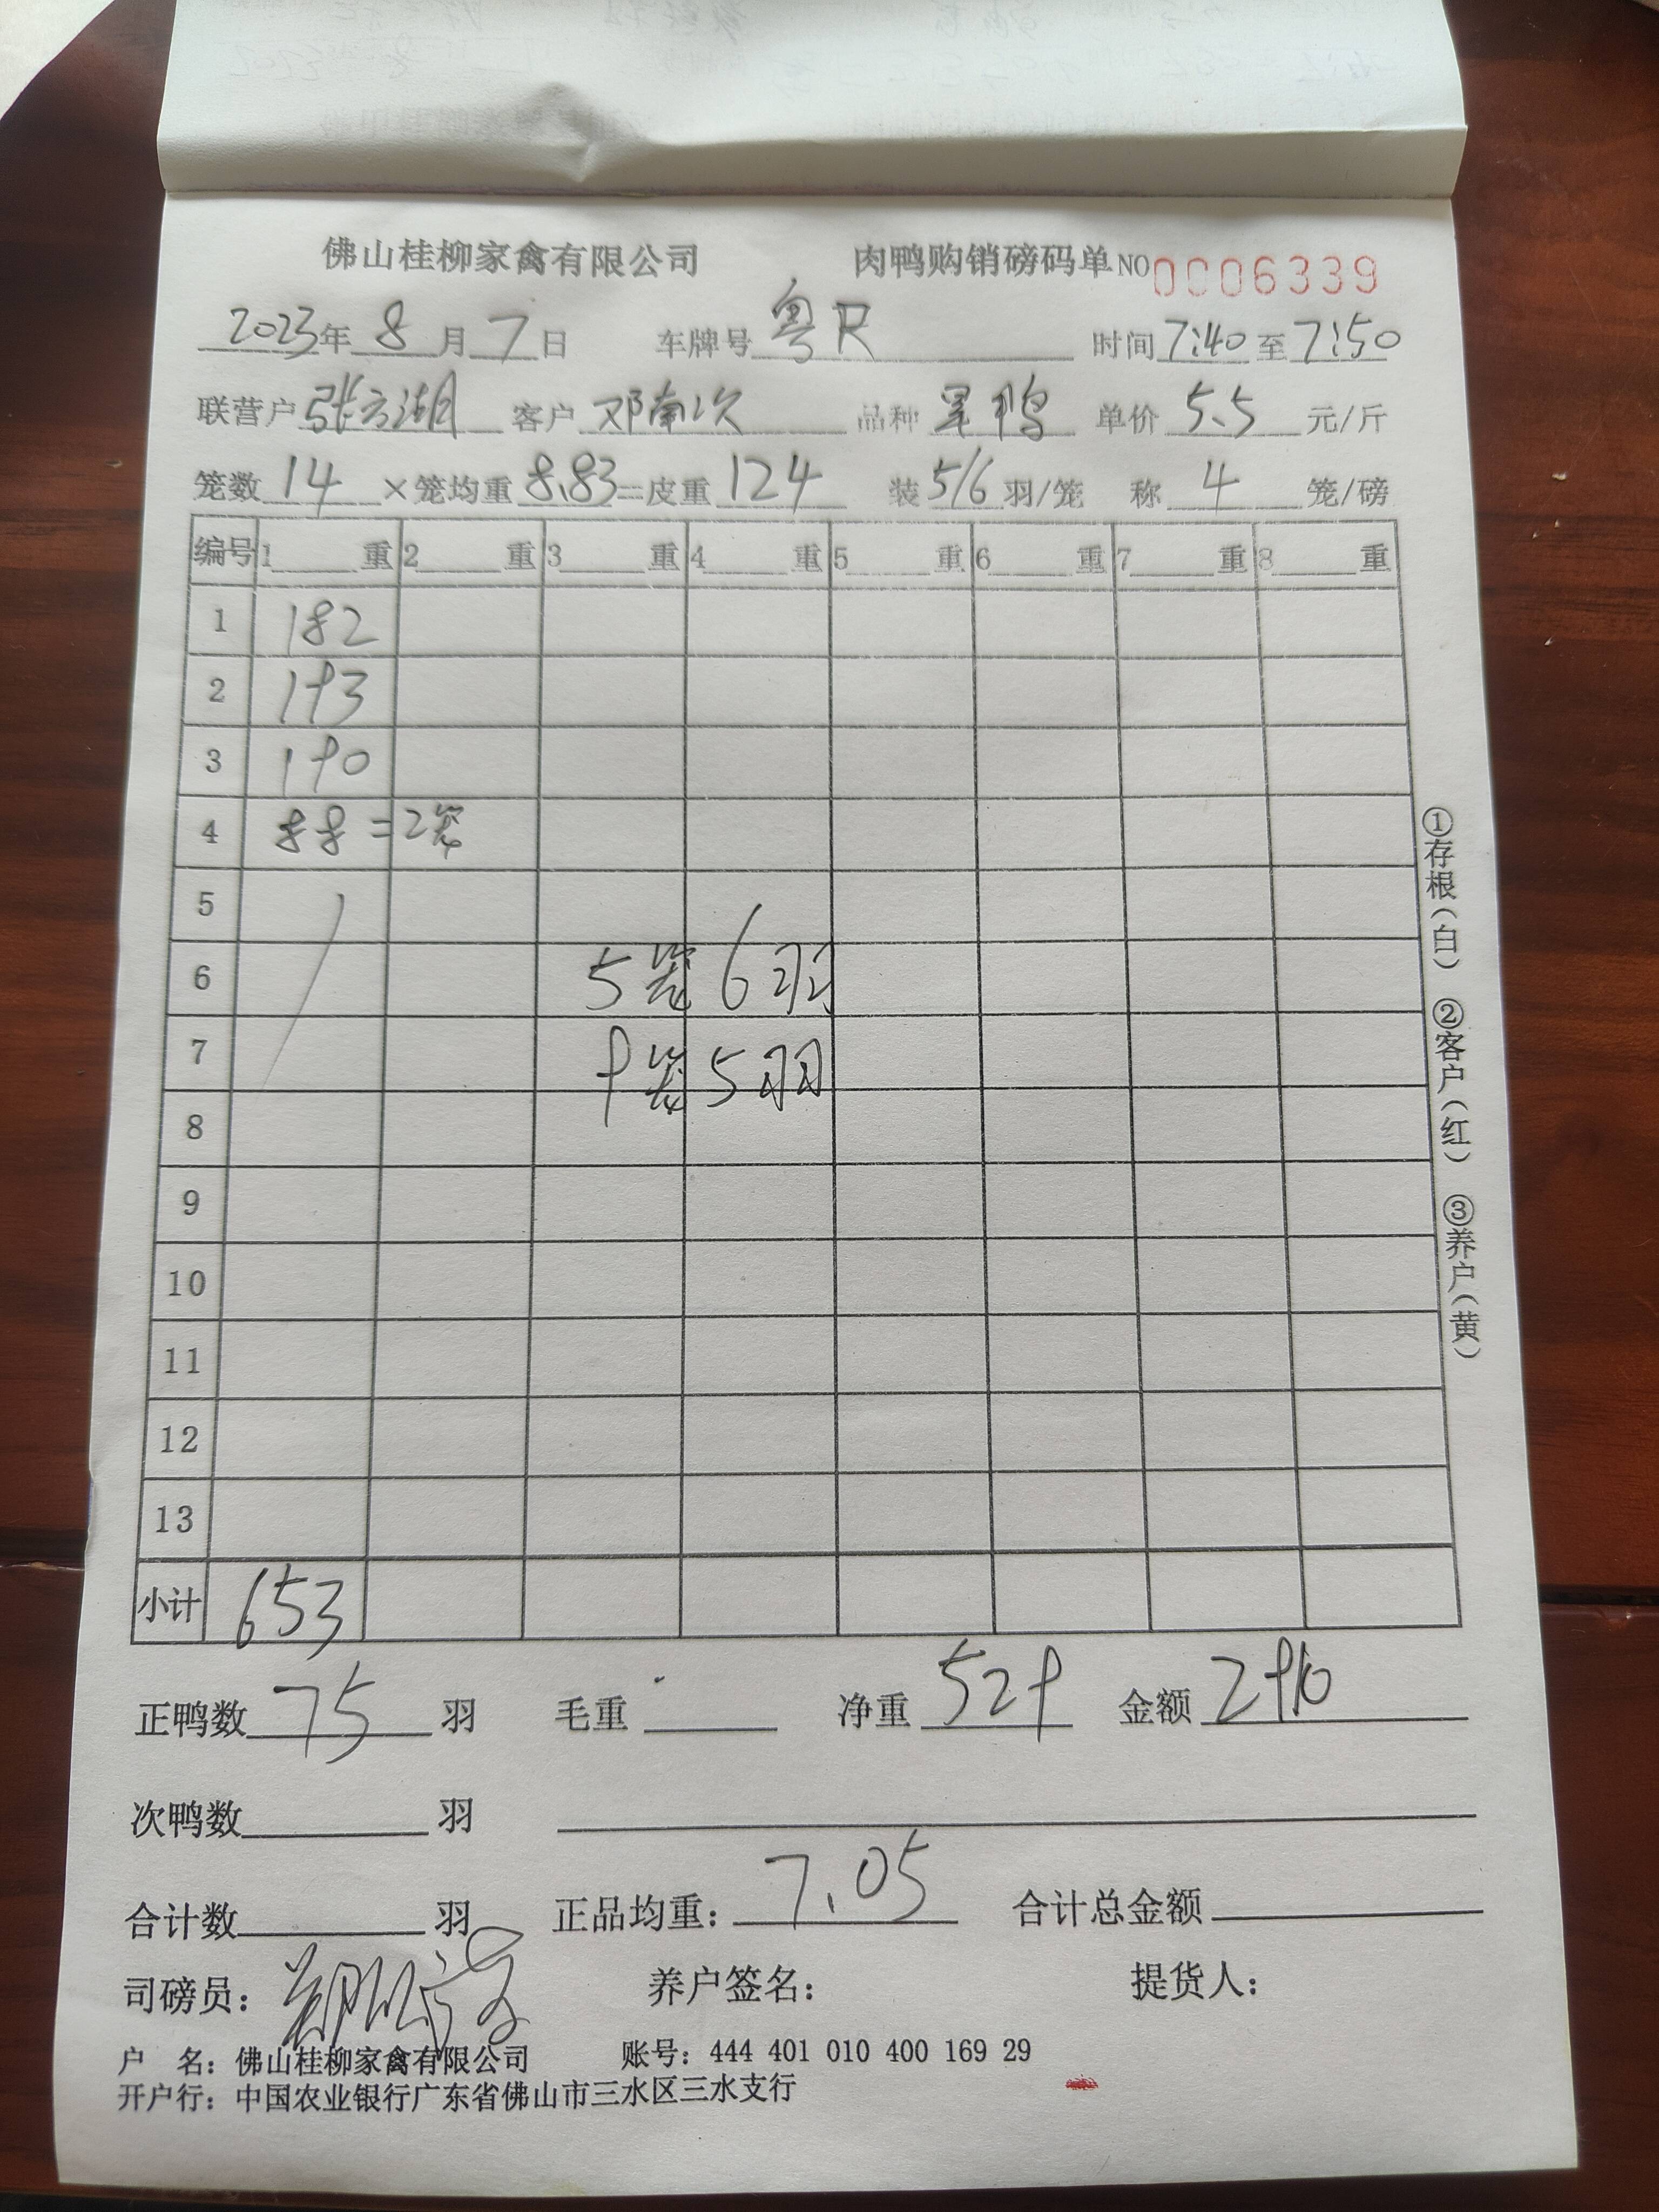 佛山桂柳家禽有限公司 肉鸭购销磅码单 NO 0006339
2023年 8 月 7 日 车牌号 粤R 时间 7:40 至 7:50
联营户 张云湖 客户 邓南次 品种 黑鸭 单价 5.5 元/斤
笼数 14 ×笼均重 8.83=皮重 124 装 5/6 羽/笼 称 4 笼/磅
编号 1 重 2 重 3 重 4 重 5 重 6 重 7 重 8 重
1 182
2 193
3 190
4 88=2笼
5
6 5笼6羽
7 9笼5羽
8
9
10
11
12
13
小计 653
①存根(白) ②客户(红) ③养户(黄)
正鸭数 75 羽 毛重 净重 529 金额 2910
次鸭数 羽
合计数 羽 正品均重: 7.05 合计总金额
司磅员: 养户签名: 提货人:
户 名: 佛山桂柳家禽有限公司 账号: 444 401 010 400 169 29
开户行: 中国农业银行广东省佛山市三水区三水支行